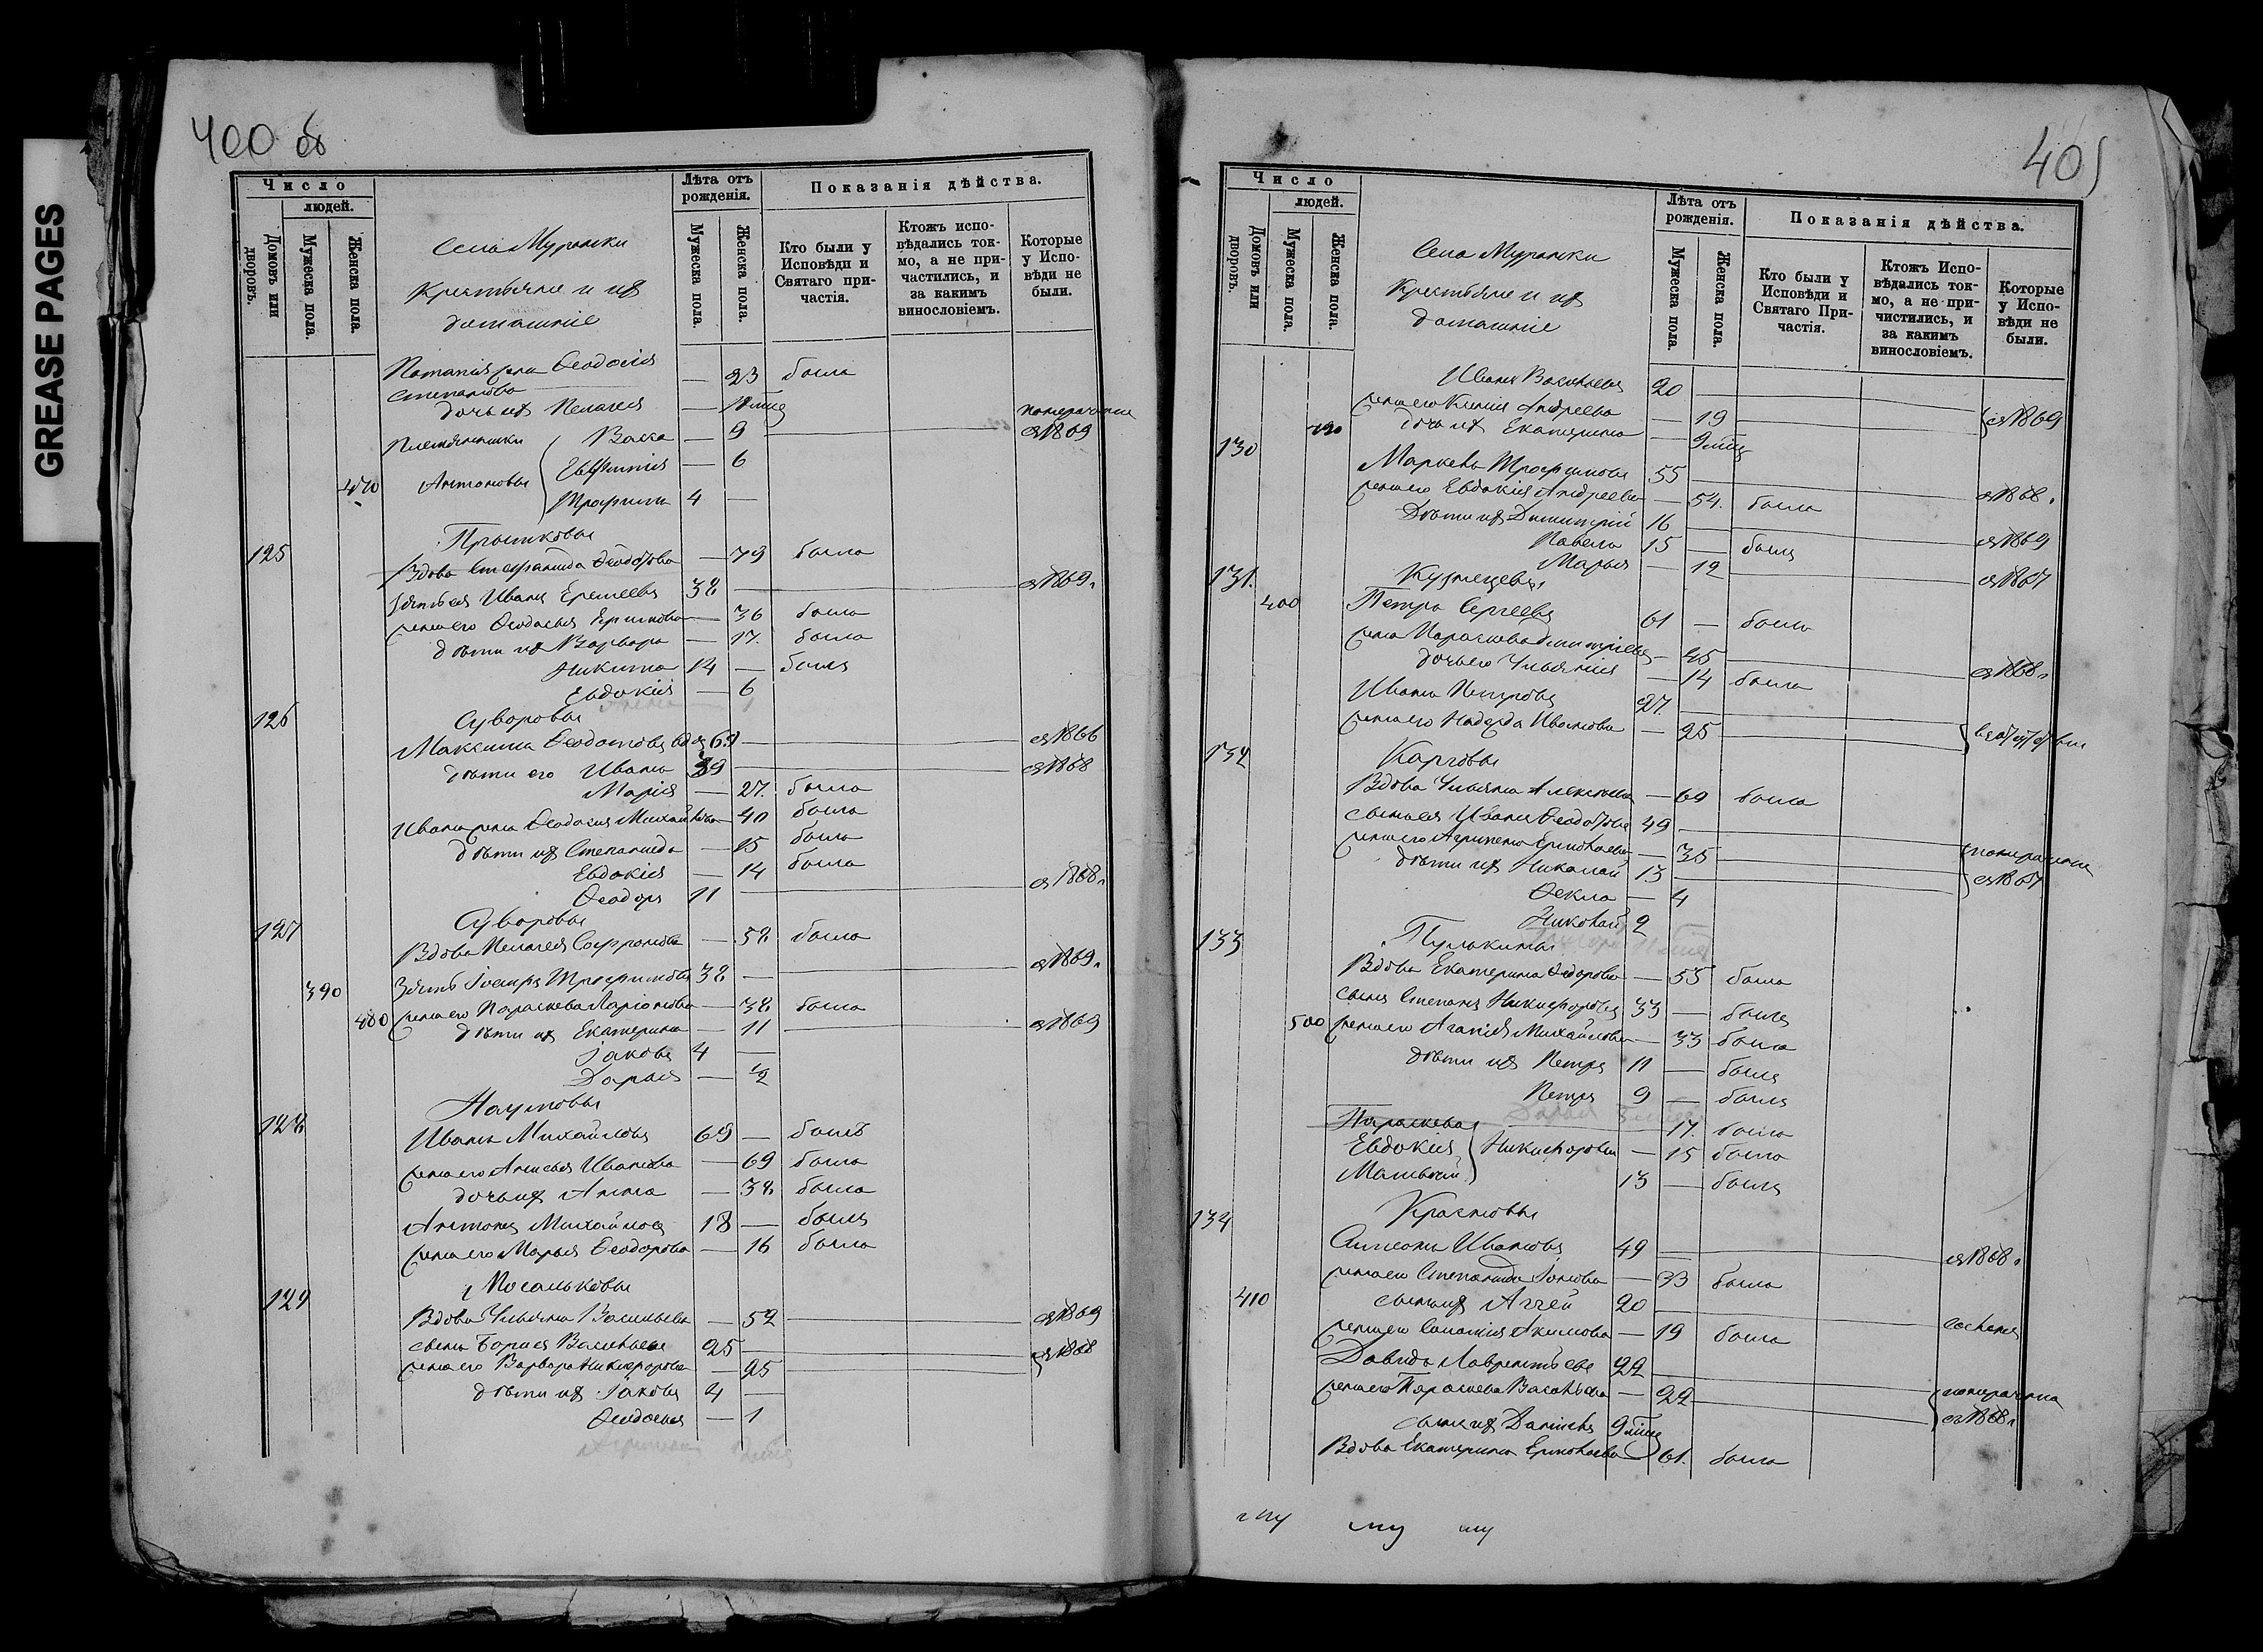 GREASE PAGES
400 об
Число
людей.
Домовъ или дворовъ.
Мужеска пола.
Женска пола.
Села Муранки
Крестьяне и ихъ
домашніе
Лѣта отъ рожденія.
Мужеска пола.
Женска пола.
Показанія дѣйства.
Кто были у Исповѣди и Святаго причастія.
Ктожъ исповѣдались токмо, а не причастились, и за какимъ винословіемъ.
Которые у Исповѣди не были.
жена Ѳеодосія
Степанова — 23 была
дочь ихъ Пелагея —
9 съ 1869
Евфимія — 6
470 Антоновы Трофимъ 4 —
125 Вдова Стефанида — 79 была
Зять ея Иванъ Еремеевъ 38 — съ 1869.
жена его Ѳеодосья — 36 была
дѣти ихъ Варвара — 17. была
Никита 14 — былъ
Евдокія — 6
126 Суворовы
Максимъ Ѳеодотовъ вдов 65 — съ 1866
дѣти его Иванъ 39 — съ 1868
Марія — 27. была
Ивана жена Ѳеодосія Михайлова — 40 была
дѣти ихъ Степанида — 15 была
Евдокія — 14 была
Ѳеодоръ 11 — съ 1868.
127 Суворовы
Вдова Пелагея Софронова — 58 была
390 Зять Іосифъ Трофимовъ 38 — съ 1869.
480 жена его Параскева Ларіонова — 38 была
дѣти ихъ Екатерина — 11 съ 1869
Іаковъ 4 —
Дарья — 1/2
Наумовы
128 Иванъ Михайловъ 69 — былъ
жена его Анисья Иванова — 69 была
дочь ихъ Анна — 38 была
Антонъ Михайловъ 18 — былъ
жена его Марья Ѳеодорова — 16 была
Мосальковы
129 Вдова Ульяна Васильева — 52 съ 1869
сынъ Борисъ Васильевъ 25 — съ 1868
жена его Варвара Никифорова — 25
дѣти ихъ Іаковъ 4 —
Ѳеодосья — 1
401
Число
людей.
Домовъ или дворовъ.
Мужеска пола.
Женска пола.
Села Муранки
Крестьяне и ихъ
домашніе
Лѣта отъ рожденія.
Мужеска пола.
Женска пола.
Показанія дѣйства.
Кто были у Исповѣди и Святаго Причастія.
Ктожъ Исповѣдались токмо, а не причистились, и за какимъ винословіемъ.
Которые у Исповѣди не были.
Иванъ Васильевъ 20 —
жена его Ксенія Андреева — 19 съ 1869
490 дочь ихъ Екатерина — 9 мѣс
130 Маркелъ Трофимовъ 55 — съ 1868.
жена его Евдокія Андреева — 54. была
Дѣти ихъ Димитрій 16 — съ 1869
Павелъ 15 — былъ
Марья — 12 съ 1867
131. Кузнецовы
400 Петръ Сергеевъ 61 — былъ
жена Параскева Димитріева — 45 съ 1868.
дочь его Ульянія — 14 была
Иванъ Петровъ 27. —
жена его Надежда Иванова — 25
132 Карповы
Вдова Ульяна Алексѣева — 69 была
сынъ ея Иванъ 49 —
жена его Агрипена Ермолаева — 35
дѣти ихъ Николай 13 съ 1867
Ѳекла — 4
Николай 2
133 Пулькины
Вдова Екатерина Ѳедорова — 55 была
сынъ Степанъ Никифоровъ 33 — былъ
500 жена его Агапія Михайлова — 33 была
дѣти ихъ Петръ 11 — былъ
Петръ 9 — былъ
Параскева — 17. была
Евдокія Никифоровы — 15 была
Матвѣй 13 — былъ
134 Красновы
Симеонъ Ивановъ 49 — съ 1868.
жена его Степанида — 33 была
410 сынъ ихъ Аггей 20 —
жена его Соломія Акимова — 19 была
Давидъ Лаврентьевъ 22 —
жена его Параскева Васильева — 22 съ 1868.
сынъ ихъ 9 мѣс
Вдова Екатерина Ермолаева — 61. была